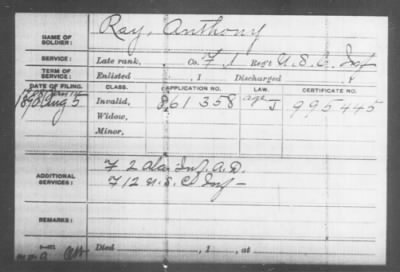 NAME OF SOLDIER: Ray, Anthony
SERVICE: Late rank, Co. F, 1 Reg't U.S.C. Inf
TERM OF SERVICE: Enlisted , 1 Discharged , 1
DATE OF FILING. CLASS. APPLICATION NO. LAW. CERTIFICATE NO.
1890 Aug 5 Invalid, 861 358 age J 995445
Widow,
Minor,
ADDITIONAL SERVICES: F 2 Ala Inf. A.D.
F 12 U.S.C. Inf
REMARKS:
Died , 1 , at